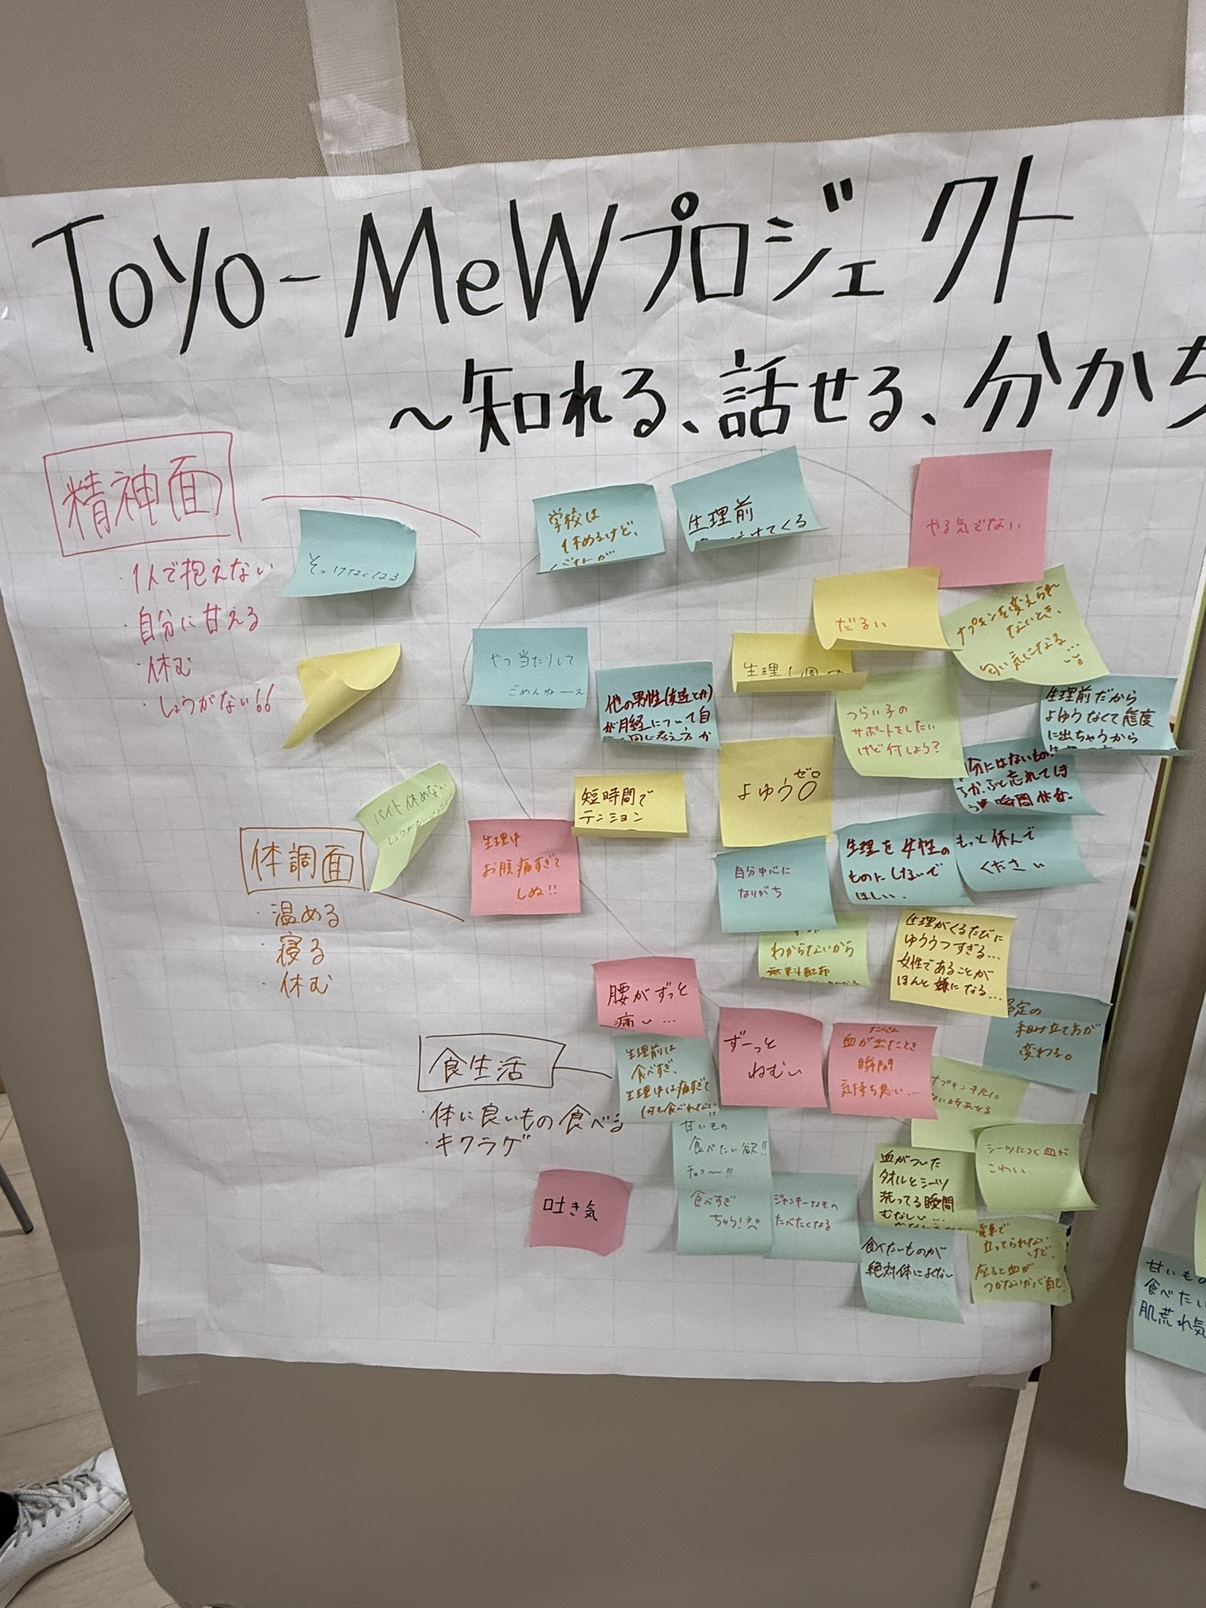 Toyo-MeWプロジェクト
～知れる、話せる、分かち
精神面
・1人で抱えない
・自分に甘える
・休む
・しょうがない
体調面
・温める
・寝る
・休む
食生活
・体に良いもの食べる
・キクラゲ
学校は
休めるけど、
生理前
やる気でない
やつ当たりして
ごめんねーえ
他の男性(彼氏とか)
が月経について自
だるい
生理1週
ナプキンを変えられ
ないとき、
匂い気になる…
つらい子の
サポートをしたい
けど何しよう?
生理前だから
よゆうなくて態度
に出ちゃうから
バイト休めない
短時間で
テンション
よゆうゼロ
生理中
お腹痛すぎて
しぬ!!
自分中心に
なりがち
生理を女性の
ものにしないで
ほしい。
もっと休んで
ください
わからないから
生理がくるたびに
ゆううつすぎる…
女性であることが
ほんと嫌になる…
予定の
組み立て方が
変わる。
腰がずっと
痛い…
生理前は
食べすぎ、
生理中は痛すぎて
何も食べれない
ずーっと
ねむい
血が出たとき
瞬間
気持ち悪い…
甘いもの
食べたい欲!!
チョコー!!
食べすぎ
ちゃう!
ジャンキーなもの
たべたくなる
吐き気
血がついた
タオルとシーツ
洗ってる瞬間
むなしい…
シーツにつく血が
こわい
食べたいものが
絶対体によくない
電車で
立ってられない
けど、
座ると血が
つかないか心配
甘いもの
食べたい
肌荒れ気